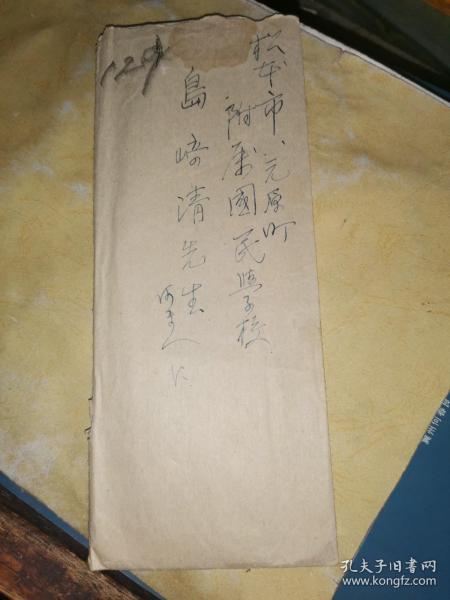 松本市元原町
附属國民學校
島崎清先生
129
孔夫子旧书网
www.kongfz.com